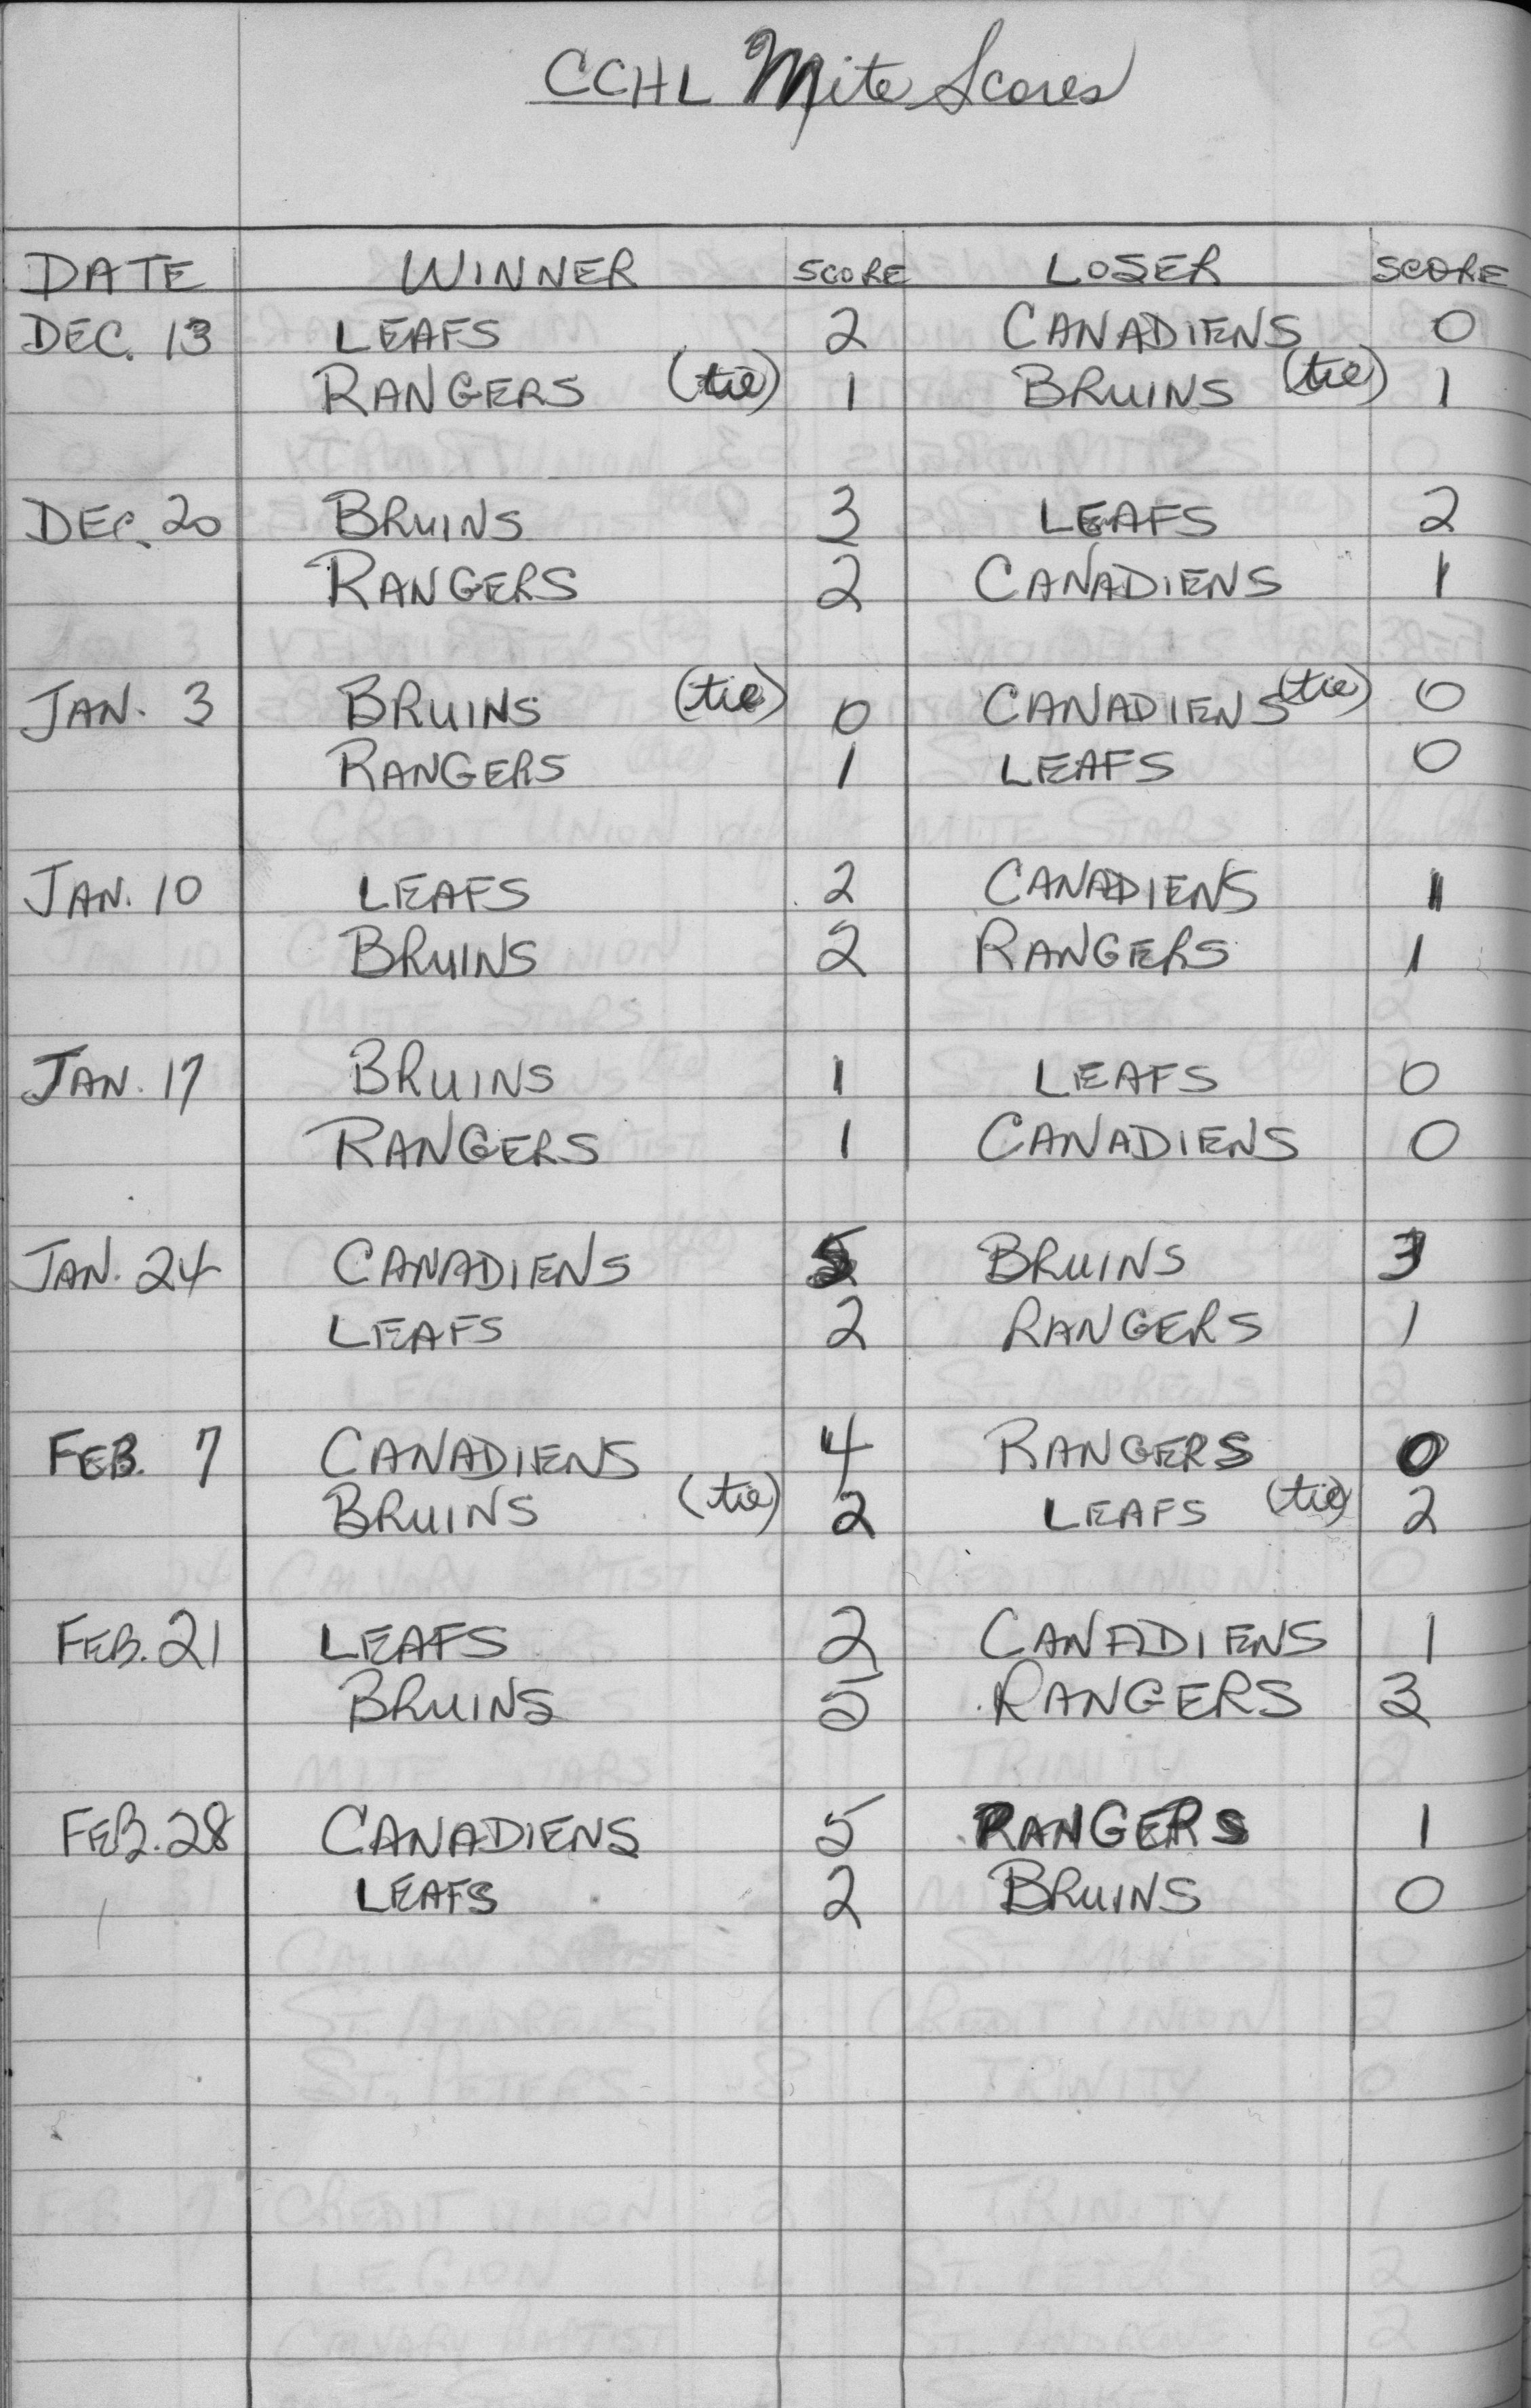 CCHL Mite Scores
DATE WINNER SCORE LOSER SCORE
DEC. 13 LEAFS 2 CANADIENS 0
RANGERS (tie) 1 BRUINS (tie) 1
DEC. 20 BRUINS 3 LEAFS 2
RANGERS 2 CANADIENS 1
JAN. 3 BRUINS (tie) 0 CANADIENS (tie) 0
RANGERS 1 LEAFS 0
JAN. 10 LEAFS 2 CANADIENS 1
BRUINS 2 RANGERS 1
JAN. 17 BRUINS 1 LEAFS 0
RANGERS 1 CANADIENS 0
JAN. 24 CANADIENS 5 BRUINS 3
LEAFS 2 RANGERS 1
FEB. 7 CANADIENS 4 RANGERS 0
BRUINS (tie) 2 LEAFS (tie) 2
FEB. 21 LEAFS 2 CANADIENS 1
BRUINS 5 RANGERS 3
FEB. 28 CANADIENS 5 RANGERS 1
LEAFS 2 BRUINS 0